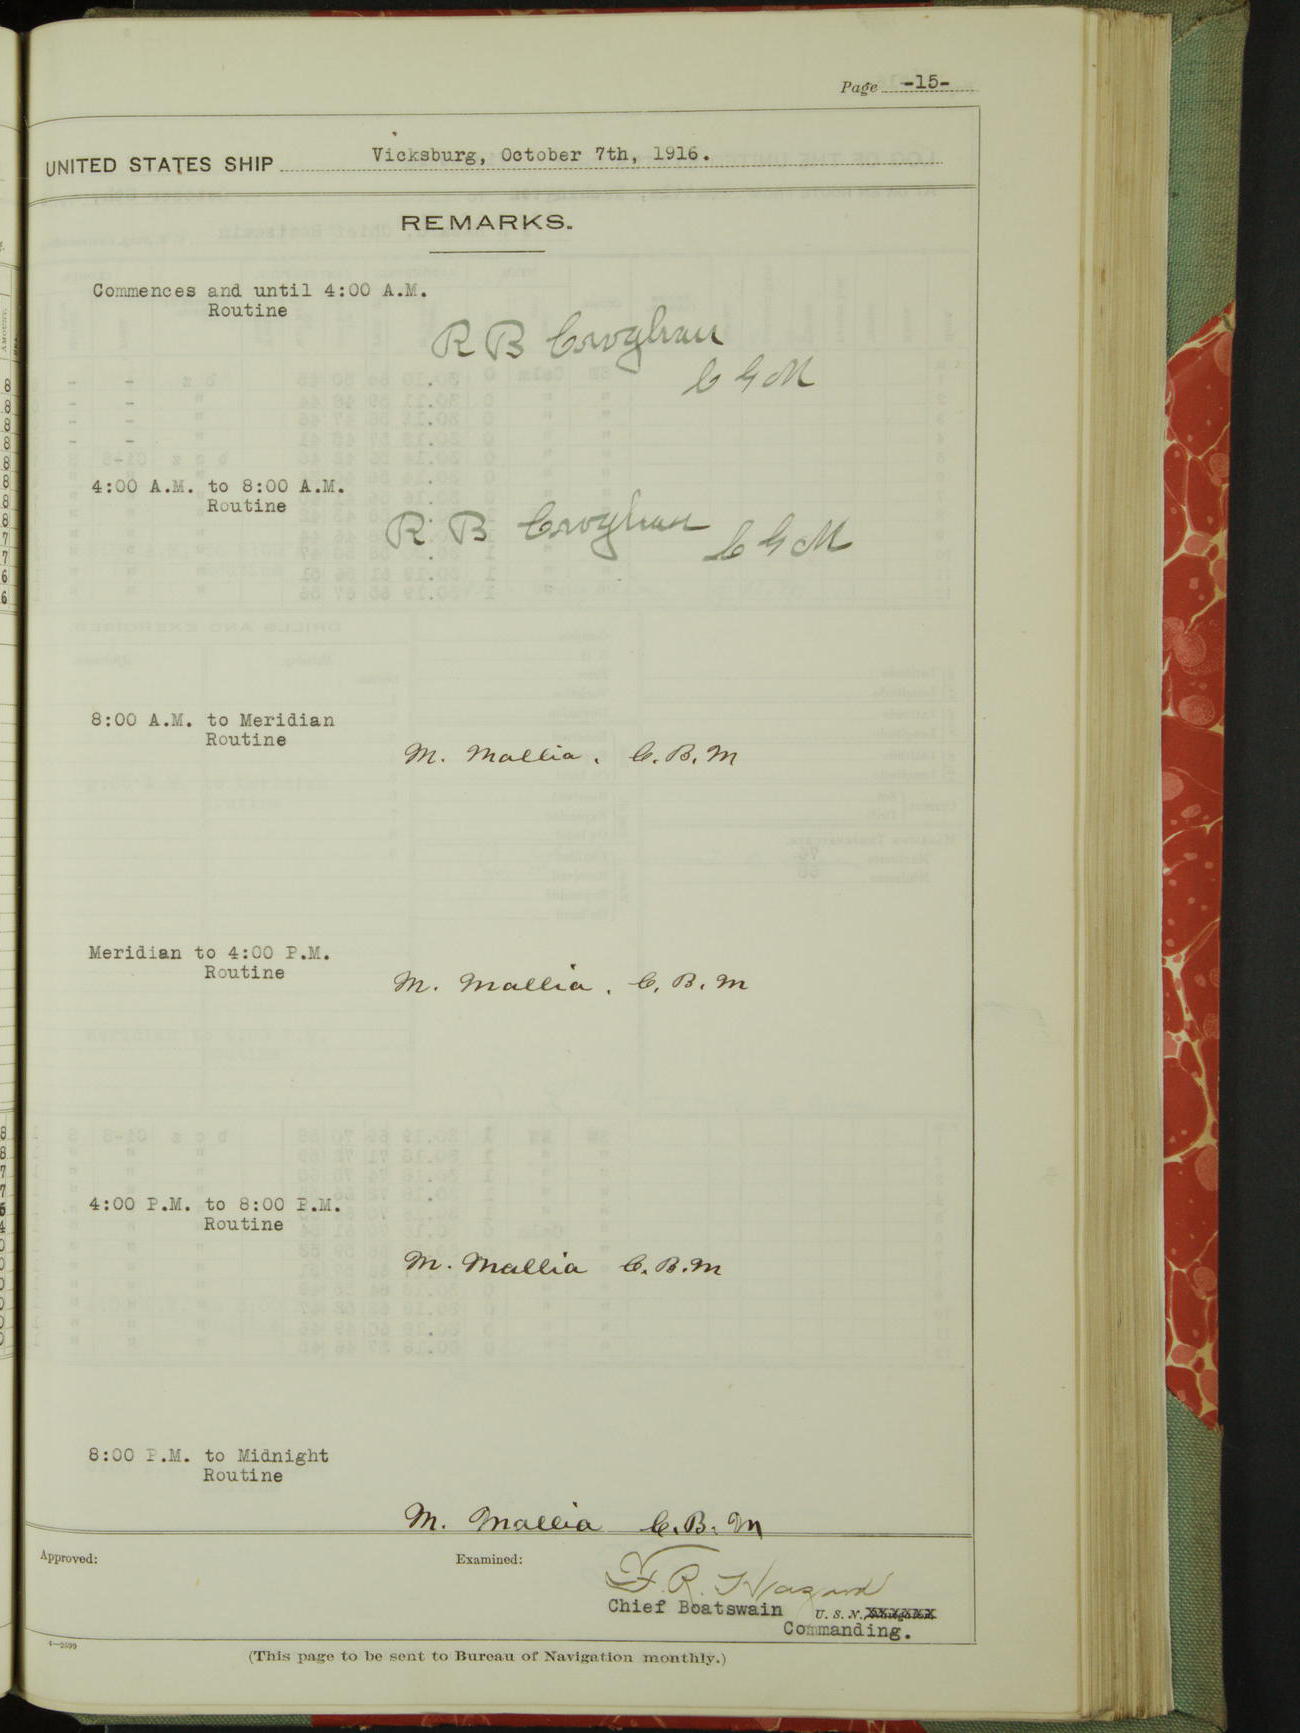 Page -15-
UNITED STATES SHIP Vicksburg, October 7th, 1916.
REMARKS.
Commences and until 4:00 A.M.
Routine
R B Croghan
C G M
4:00 A.M. to 8:00 A.M.
Routine
R B Croghan C G M
8:00 A.M. to Meridian
Routine
M. Mallia. C.B.M
Meridian to 4:00 P.M.
Routine
M. Mallia. C.B.M
4:00 P.M. to 8:00 P.M.
Routine
M. Mallia C.B.M
8:00 P.M. to Midnight
Routine
M. Mallia C.B.M
Approved:
Examined:
F. R. Hazard
Chief Boatswain U. S. N.
Commanding.
4—2599
(This page to be sent to Bureau of Navigation monthly.)